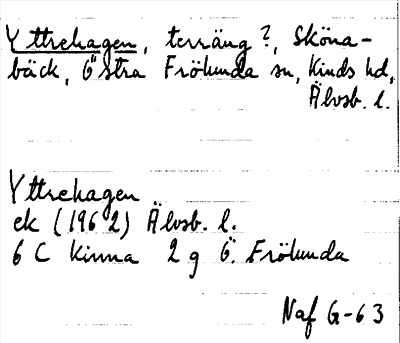 Yttrehagen, terräng?, Sköna-
bäck, Östra Frölunda sn, Kinds hd,
Älvsb. l.
Yttrehagen
ek (1962) Älvsb. l.
6 C Kinna 2 g Ö. Frölunda
Naf G-63